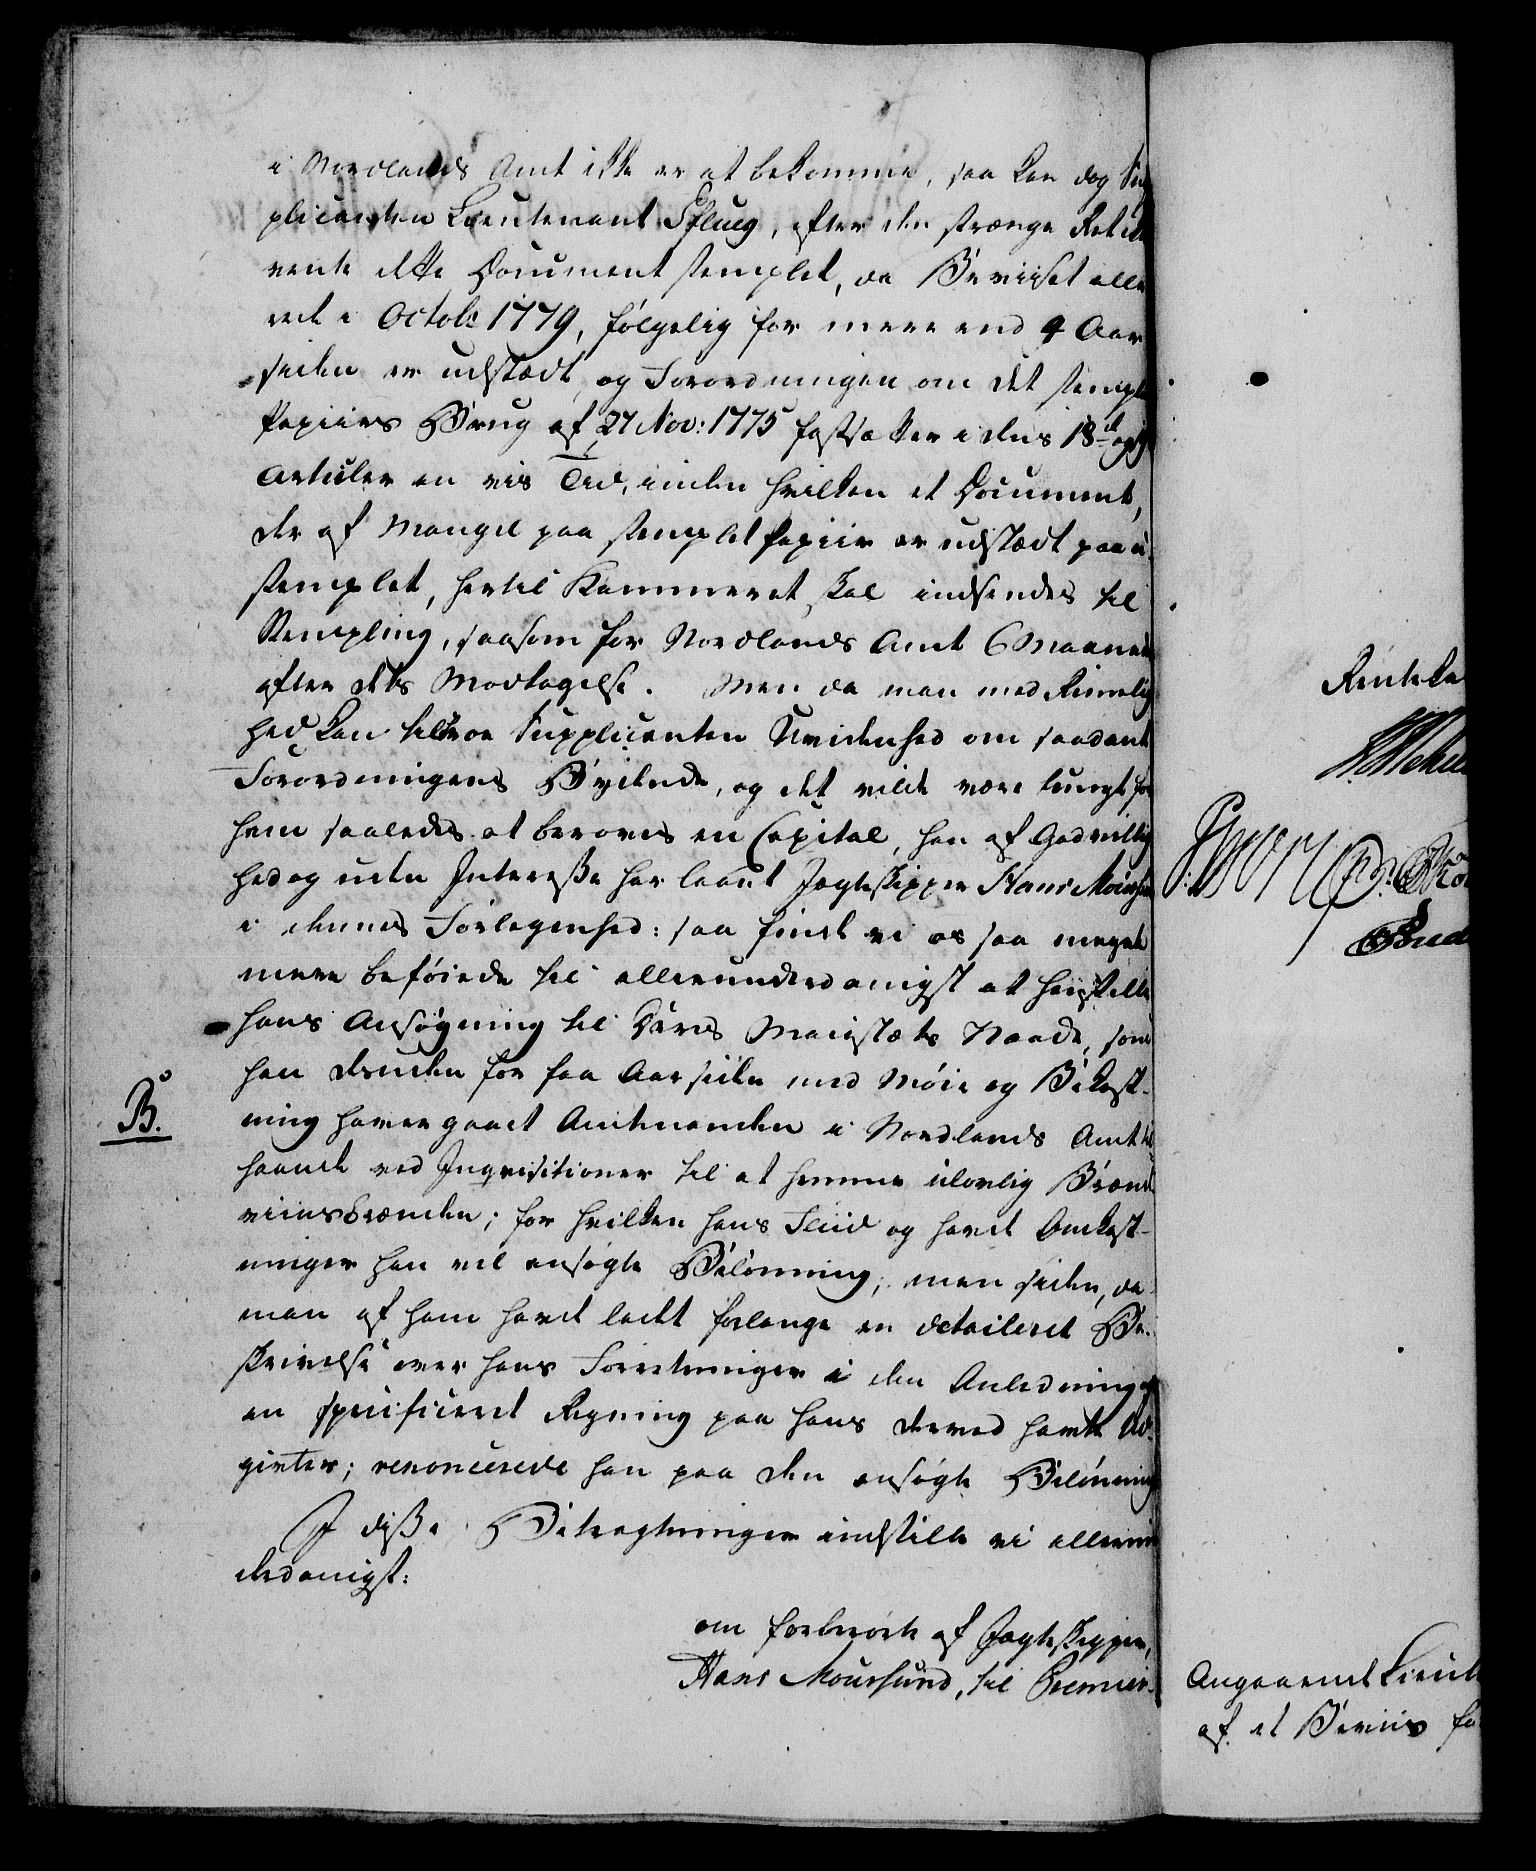 i Nordlands Amt ikke er at bekomme, saa kan dog Sup
plicanten Lieutenant Pflueg, efter den strænge Ret ei
vente dette Document stemplet, da Beviset alle
rede i Octobr 1779, følgelig for mere end 4 Aar
siden er udstædt, og Forordningen om det stemplede
Papiirs Brug af 27 Nov: 1775 fastsætter i dens 18de og 19
Articler en vis Tid, inden hvilken et Document,
der af Mangel paa stemplet Papiir er udstædt paa u-
stemplet, hertil Kammeret skal indsendes til
Stempling, saasom for Nordlands Amt 6 Maaneder
efter dets Modtagelse. Men da man med Rimelig
hed kan tiltroe Supplicanten Uvidenhed om saadant
Forordningens Bydende, og det vilde være tungt for
ham saaledes at berøves en Capital, han af Godvillig
hed og uden Interesse har laant Jagteskipper Hans Moursund
i dennes Forlegenhed: saa finde vi os saa meget
mere beføiede til allerunderdanigst at henstille
hans Ansøgning til Deres Majestæts Naade, som
han desuden for faa Aar siden med Møie og Bekost-
ning haver gaaet Amtmanden i Nordlands Amt til
haande ved Inqvisitioner til at hemme ulovlig Brænde
viinsbrænden; for hvilken hans Fliid og havde Omkost-
ninger han vel ansøgte Belønning, men siden, da
man af ham havde ladet forlange en detailleret Be-
skrivelse over hans Forretninger i den Anledning og
en specificeret Regning paa hans derved havte Ud-
givter; renoncerede han paa den ansøgte Belønning
I disse Betragtninger indstille vi allerun
derdanigst:
om forbenævnte af Jagteskipper,
Hans Moursund, til Premier-
B.
Rentekam
Angaaende Lieut
af et Beviis fo